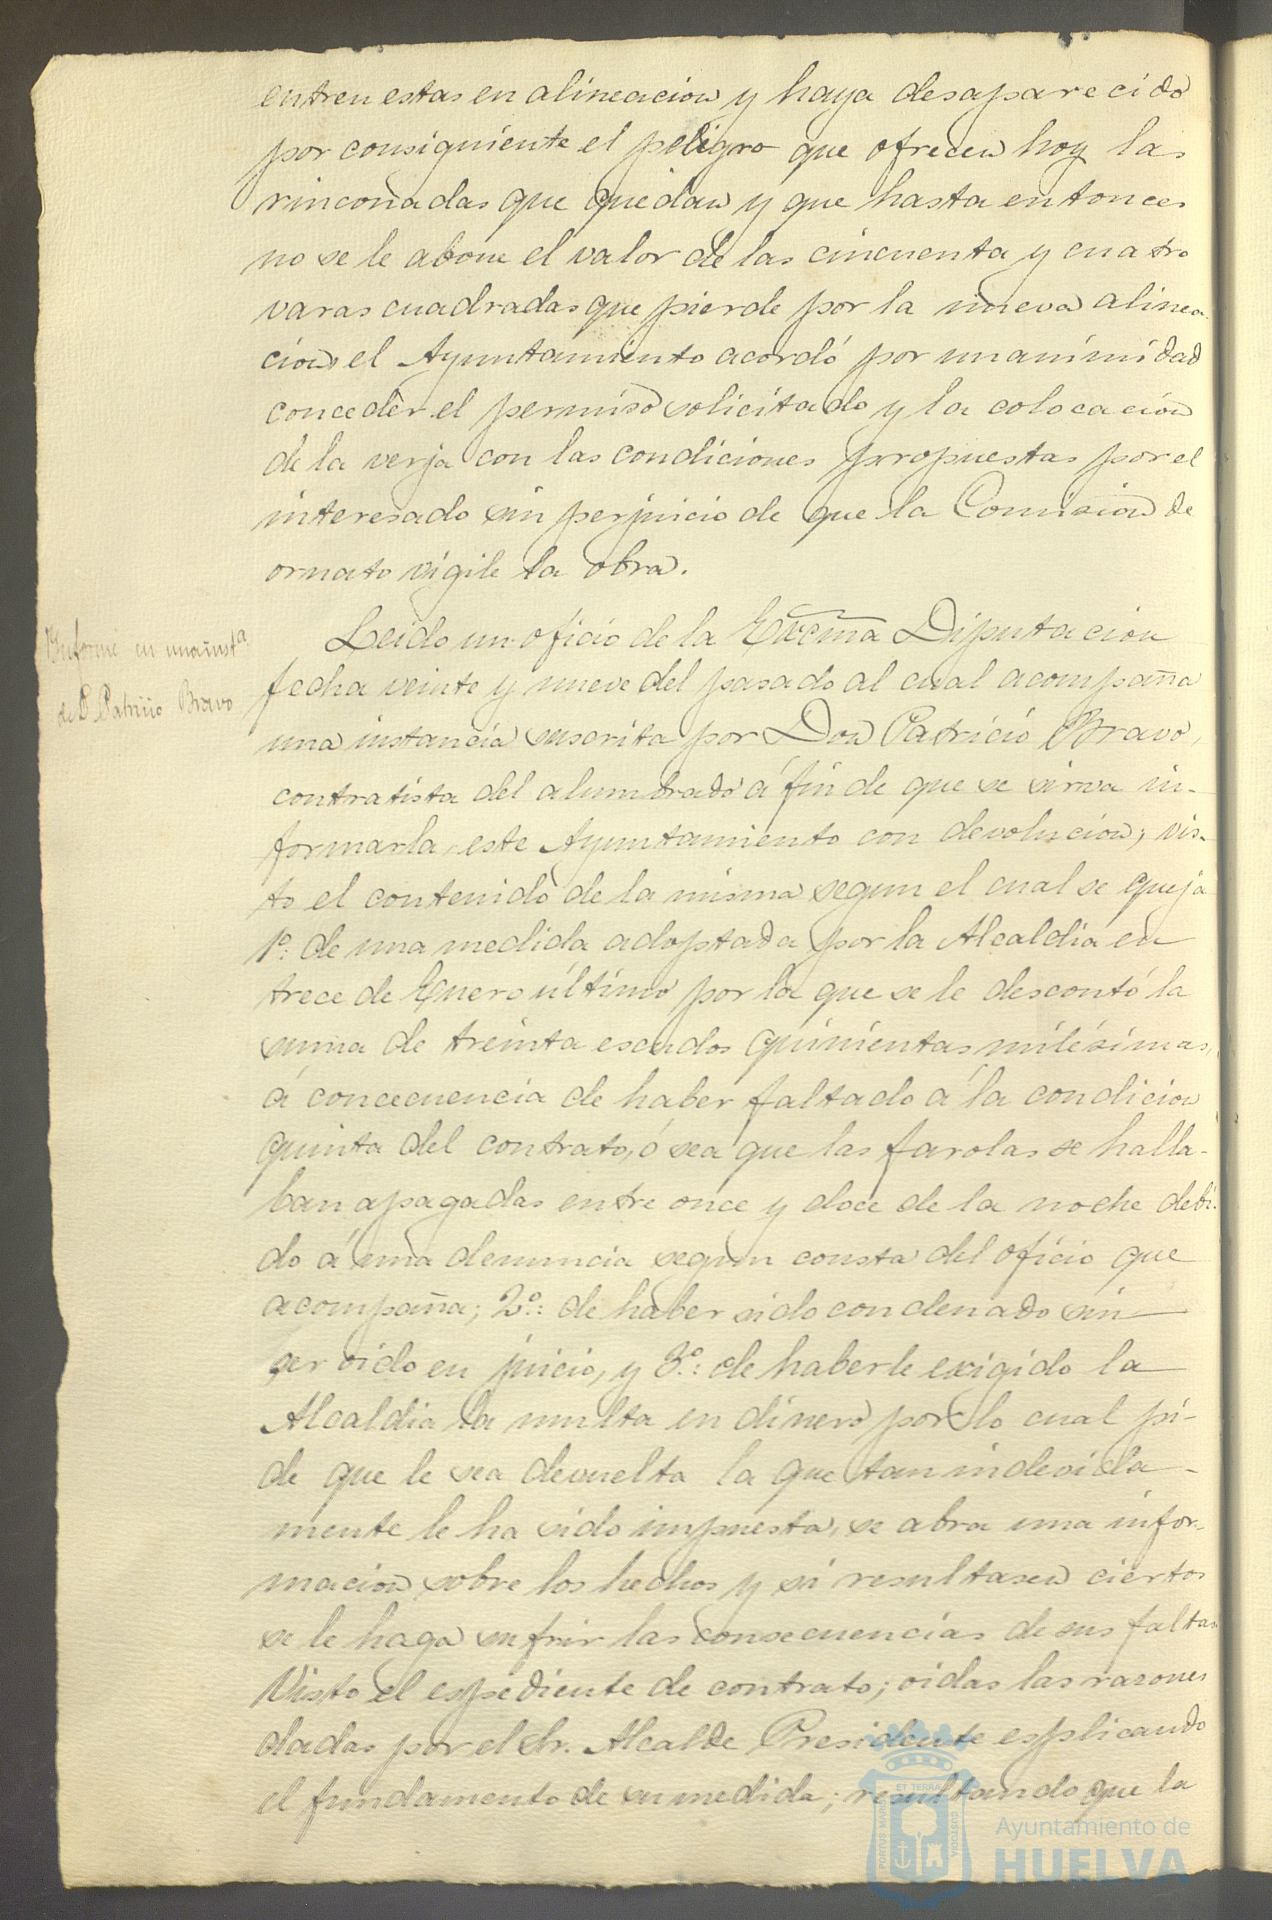 entren estas en alineacion y haya desaparecido
por consiguiente el peligro que ofrecen hoy las
rinconadas que quedan y que hasta entonces
no se le abone el valor de las cincuenta y cuatro
varas cuadradas que pierde por la nueva alinea
cion, el Ayuntamiento acordó por unanimidad
conceder el permiso solicitado y la colocacion
de la verja con las condiciones propuestas por el
interesado sin perjuicio de que la Comision de
ornato vigile la obra.
Informe en una inst.ª
de D. Patricio Bravo
Leido un oficio de la Excma Diputacion
fecha veinte y nueve del pasado al cual acompaña
una instancia suscrita por Don Patricio Bravo,
contratista del alumbrado á fin de que se sirva in-
formarla este Ayuntamiento con devolucion; vis-
to el contenido de la misma segun el cual se queja
1º: de una medida adoptada por la Alcaldia en
trece de Enero último por la que se le descontó la
suma de treinta escudos quinientas milésimas,
á concecuencia de haber faltado á la condicion
quinta del contrato, ó sea que las farolas se halla-
ban apagadas entre once y doce de la noche debi-
do á una denuncia segun consta del oficio que
acompaña; 2º: de haber sido condenado sin
ser oido en juicio, y 3º: de haberle exigido la
Alcaldia la multa en dinero por lo cual pi-
de que le sea devuelta la que tan indevida-
mente le ha sido impuesta, se abra una infor-
macion sobre los hechos y si resultasen ciertos
se le haga sufrir las consecuencias de sus faltas.
Visto el espediente de contrato; oidas las razones
dadas por el Sr. Alcalde Presidente esplicando
el fundamento de su medida; resultando que la
PORTUS MARIS ET TERRAE CUSTODIA
Ayuntamiento de
HUELVA